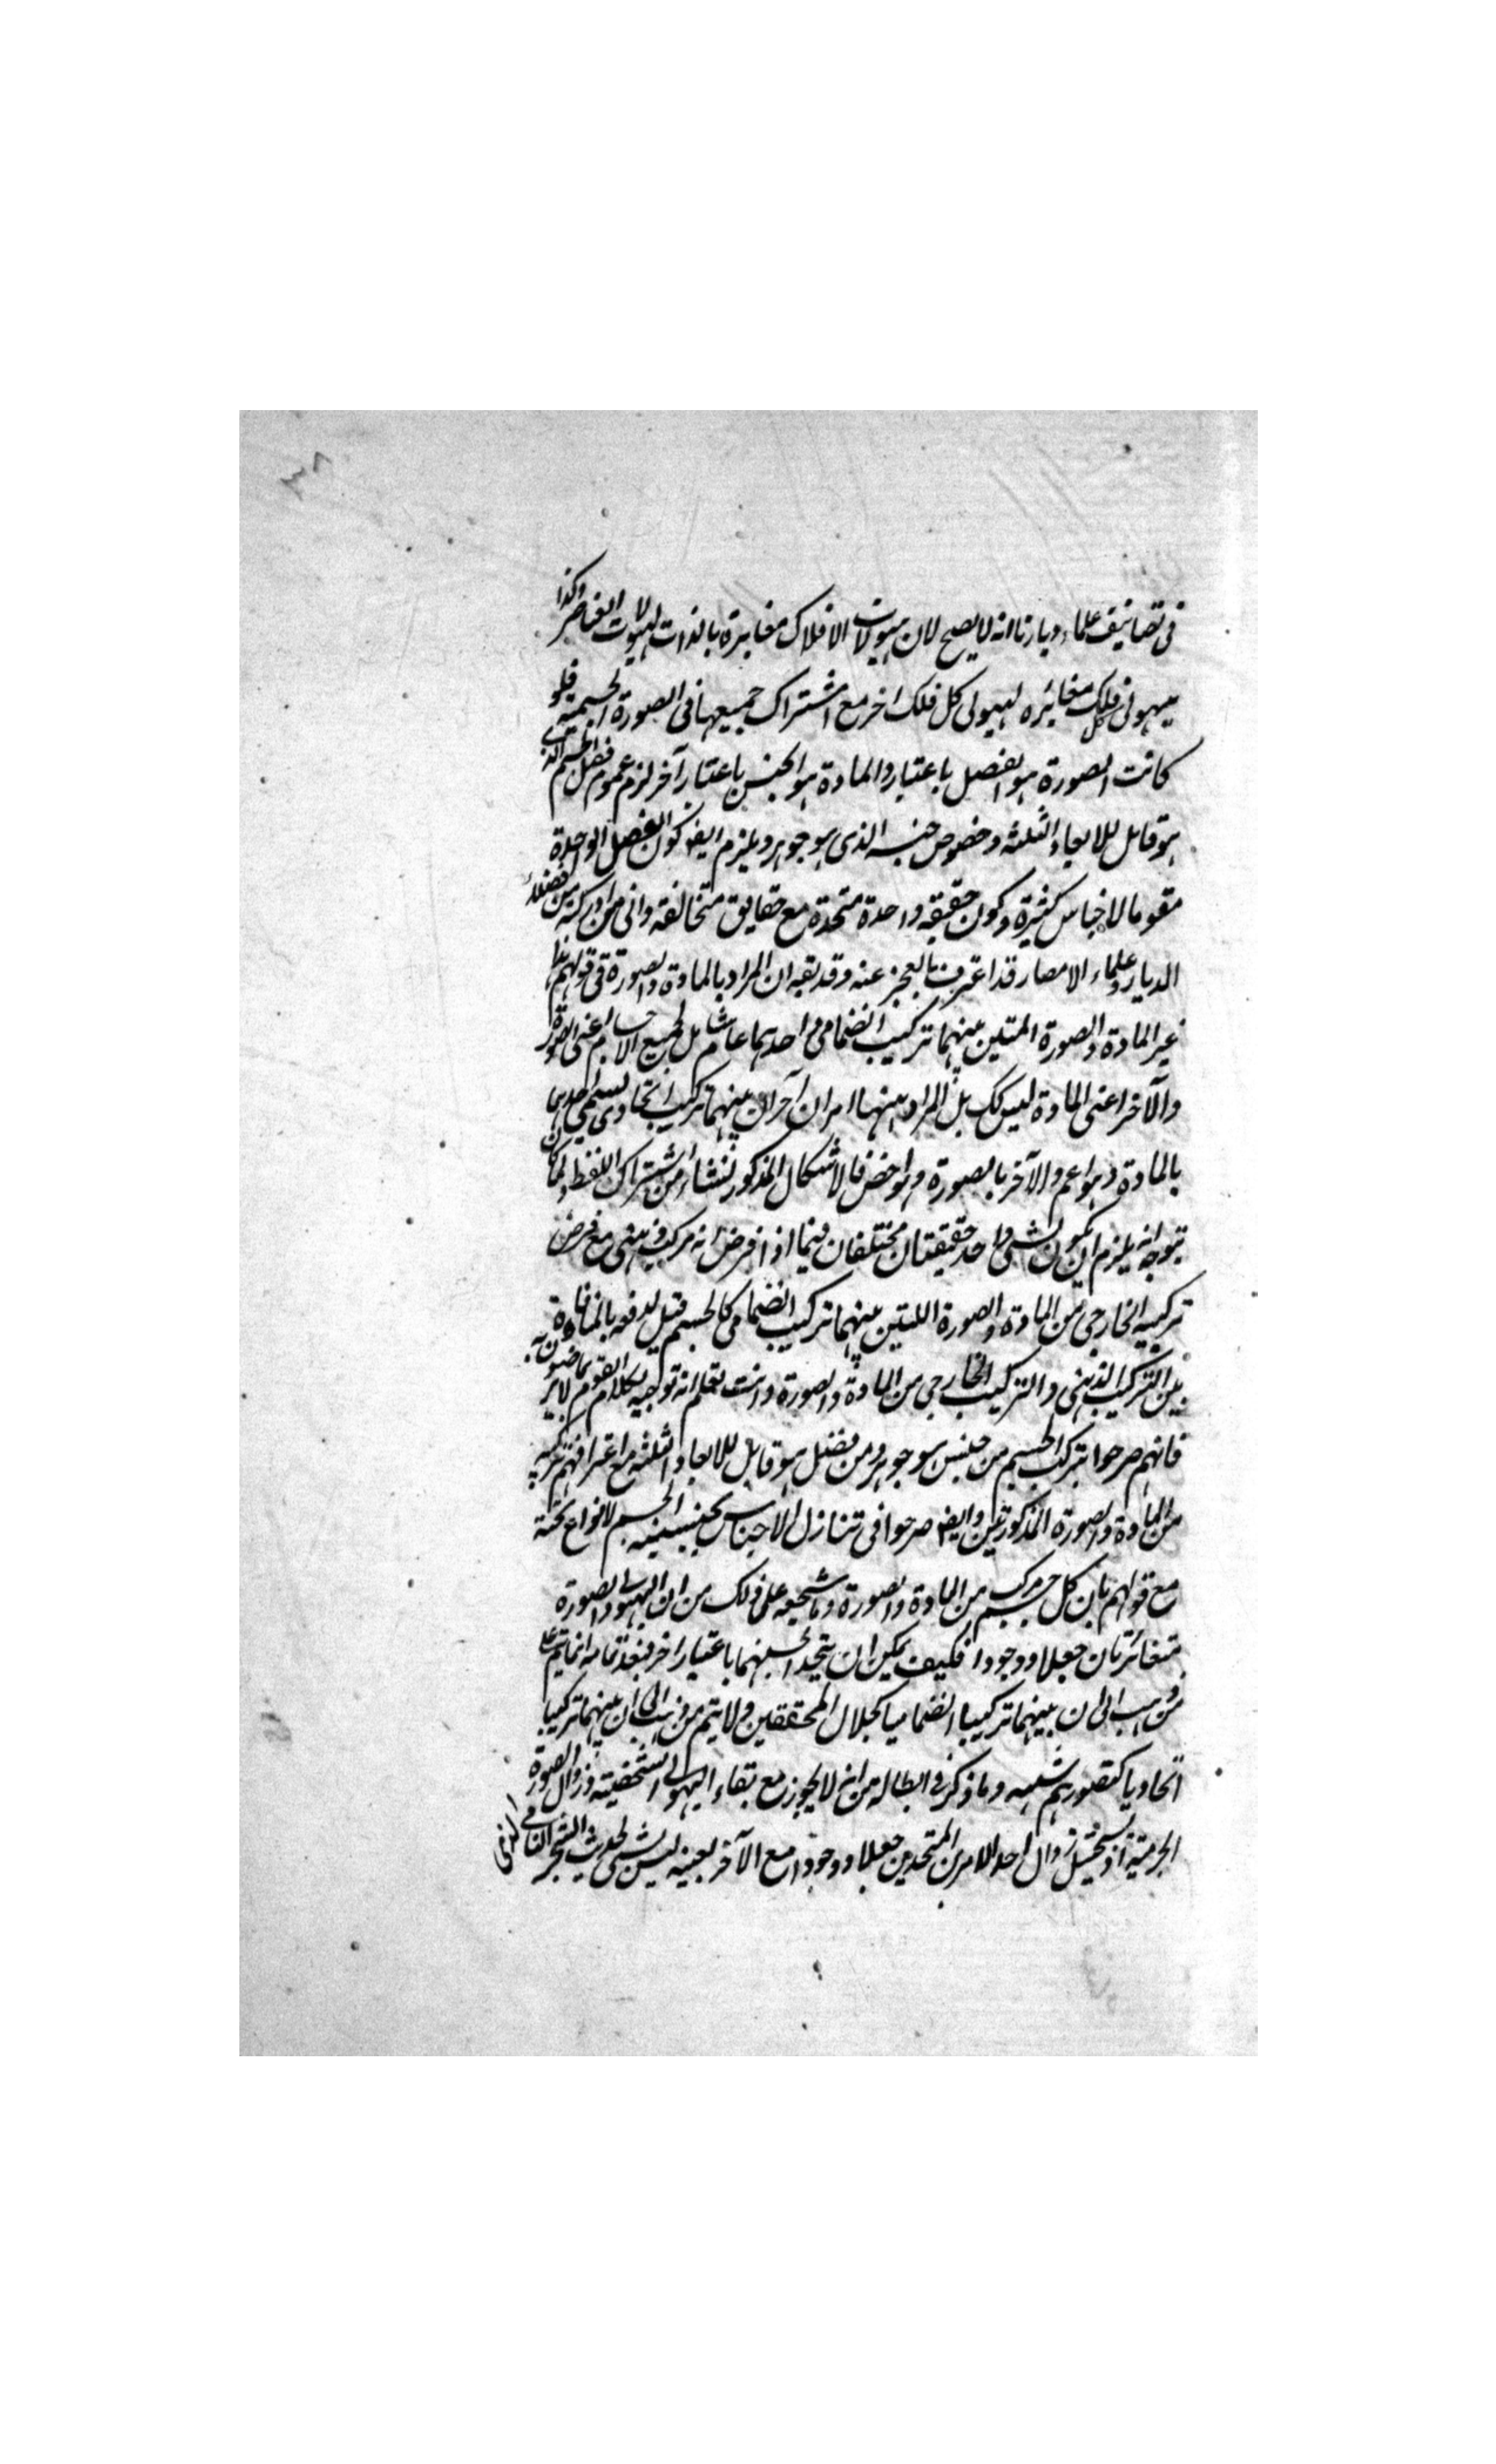 ٣٨
فى تصانيف علماء ديارنا انه لا يصح لان هيولات الافلاك مغايرة بالذات لهيولات العناصر وكذا
هيولى كل فلك مغائره لهيولى كل فلك اخر مع اشتراك جميعها فى الصورة الجسمية فلو
كانت الصورة هو الفصل باعتبار والمادة هو الجنس باعتبار آخر لزم عموم فصل الجسم الذى
هو قابل للابعاد الثلثه وخصوص جنسه الذى هو جوهر ويلزم ايضا كون الفصل الواحدة
مقوما لاجناس كثيرة وكون حقيقه واحدة متحدة مع حقايق متخالفة وانى من ادركته من فضلاء
الديار وعلماء الامصار قد اعترف بالعجز عنه وقد يقه ان المراد بالمادة والصورة فى قولهم هذا
غير المادة والصورة المتين بينهما تركيب انضمامى احديهما عام شامل لجميع الاجسام اعنى الصورة
والآخر اعنى المادة ليس كك بل المراد بينهما امران آخران بينهما تركيب اتحادى يسمى احديهما
بالمادة وهو اعم والآخر بالصورة وهو اخص فالاشكال المذكور نشاء من اشتراك اللفظ ولما كان
يتوجه انه يلزم ان يكون لشى واحد حقيقتان مختلفان فيما اذا فرض انه مركب ذهنى مع فرض
تركيبه الخارجى من المادة والصورة اللتين بينهما تركيب انضمامى كالجسم قيل لدفعه بالمنافاة
بين التركيب الذهنى والتركيب الخارجى من المادة والصورة وانت تعلم انه توجيه لكلام القوم بما لا يرضون به
فانهم صرحوا بتركب الجسم من جنس هو جوهر ومن فصل هو قابل للابعاد الثلثه مع اعترافهم بتركبه
من المادة والصورة المذكورتين وايضا صرحوا فى تنازل الاجناس بجنسية الجسم لانواع تحته
مع قولهم بان كل جسم مركب من المادة والصورة وما شجيعه على ذلك من ان الهيولى والصورة
متغائرتان جعلا ووجودا فكيف يمكن ان يتحد الجنسهما باعتبار اخر فبعد تمامه انما يتم على
من ذهب الى ان بينهما تركيبا انضماميا كجلال المحققين ولا يتم من ذهب الى ان بينهما تركيبا
اتحاديا كتصورهم شيمه وما ذكر فى ابطاله من انه لا يجوز مع بقاء الهيولى الشخصية وزوال الصورة
الجرمية اذ يستحيل زوال احد الامرين المتحدين جعلا ووجودا مع الآخر بعينه ليس بشى لحديث الشجر النامى الذى